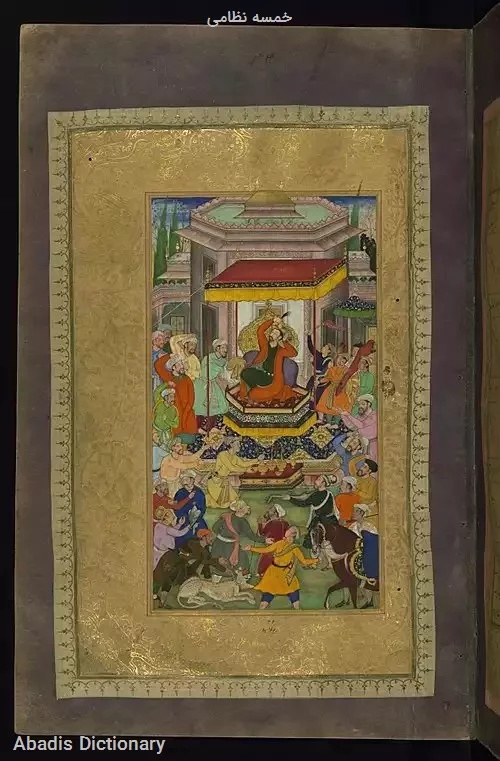 خمسه نظامی
Abadis Dictionary